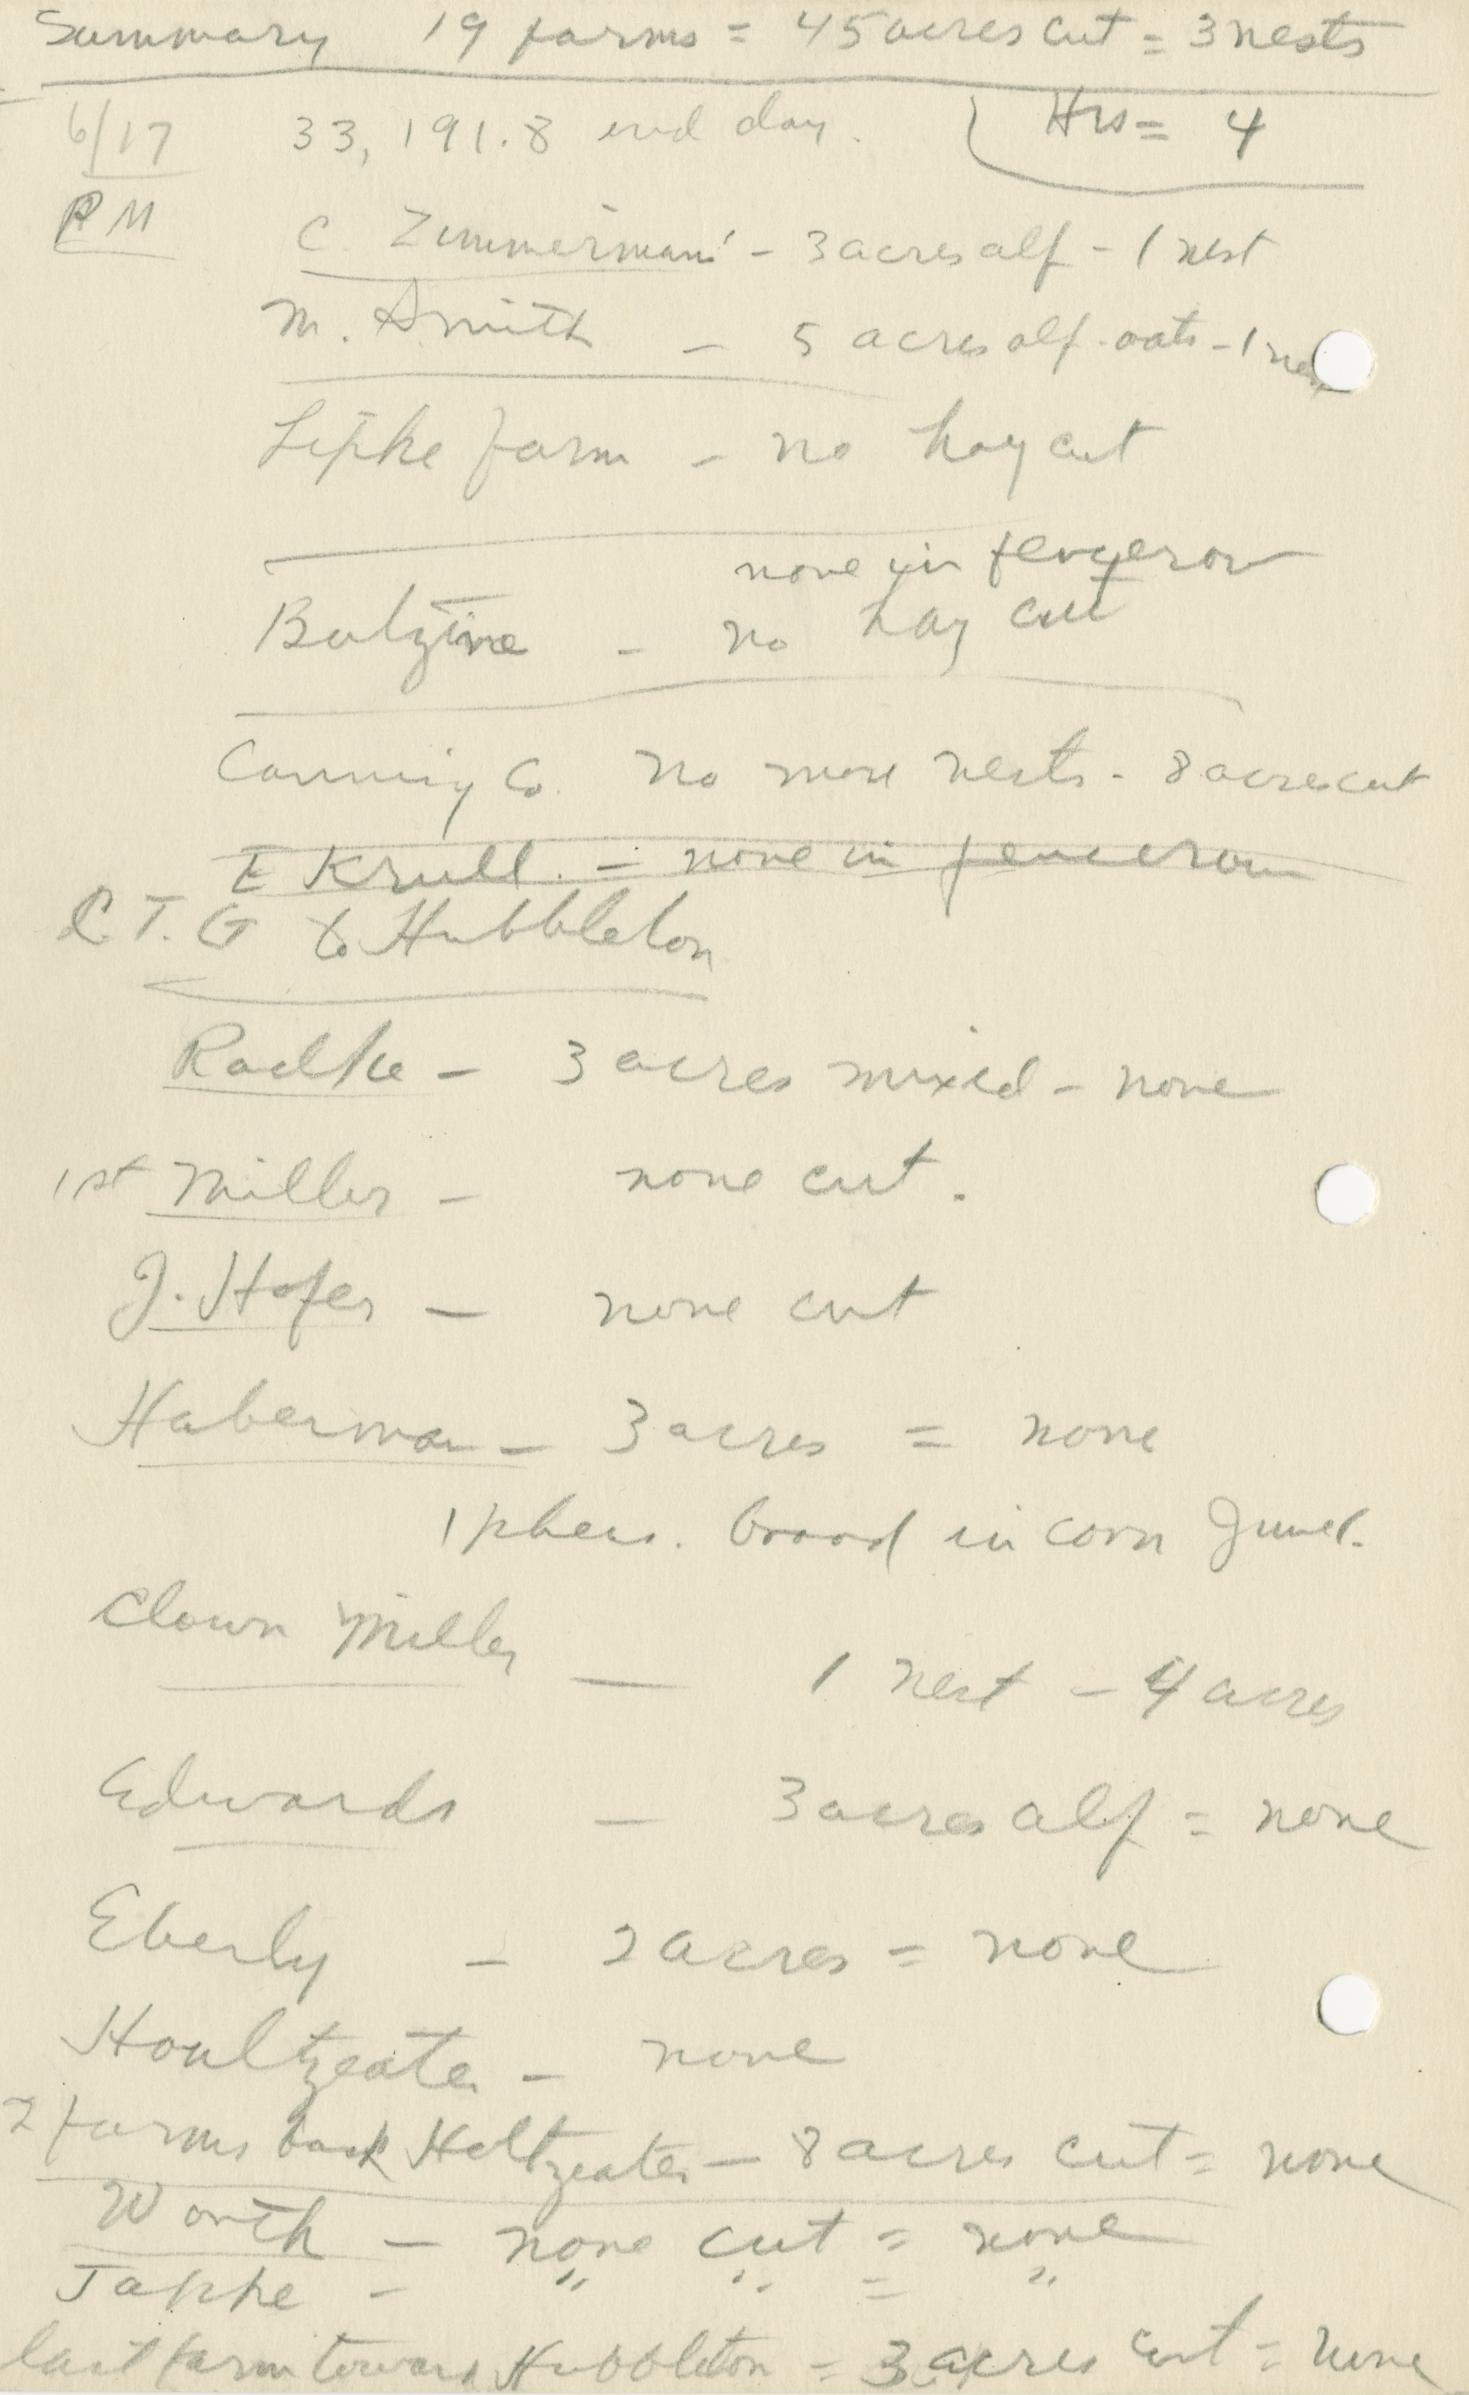 Summary 19 farms = 45 acres cut = 3 nests
6/17 33,191.8 end day. Hrs = 4
PM C. Zimmerman' - 3 acres alf - 1 nest
M. Smith - 5 acres alf-oats - 1 nest
Lipke farm - no hay cut
none in fencerow
- no hay cut
Canning Co. No more nests - 8 acres cut
E Krull. - none in fencerow
R.T.G to Hubbleton
Radke - 3 acres mixed - none
1st Miller - none cut.
J. Hofer - none cut
Haberman - 3 acres = none
1 pheas. brood in corn June 1.
Clown Miller - 1 nest - 4 acres
Edwards - 3 acres alf = none
Eberly - 2 acres = none
Houltzeater - none
2 farms back Holtzeater - 8 acres cut = none
Worth - none cut = none
Jappe - " " = "
last farm toward Hubbleton = 3 acres cut = none